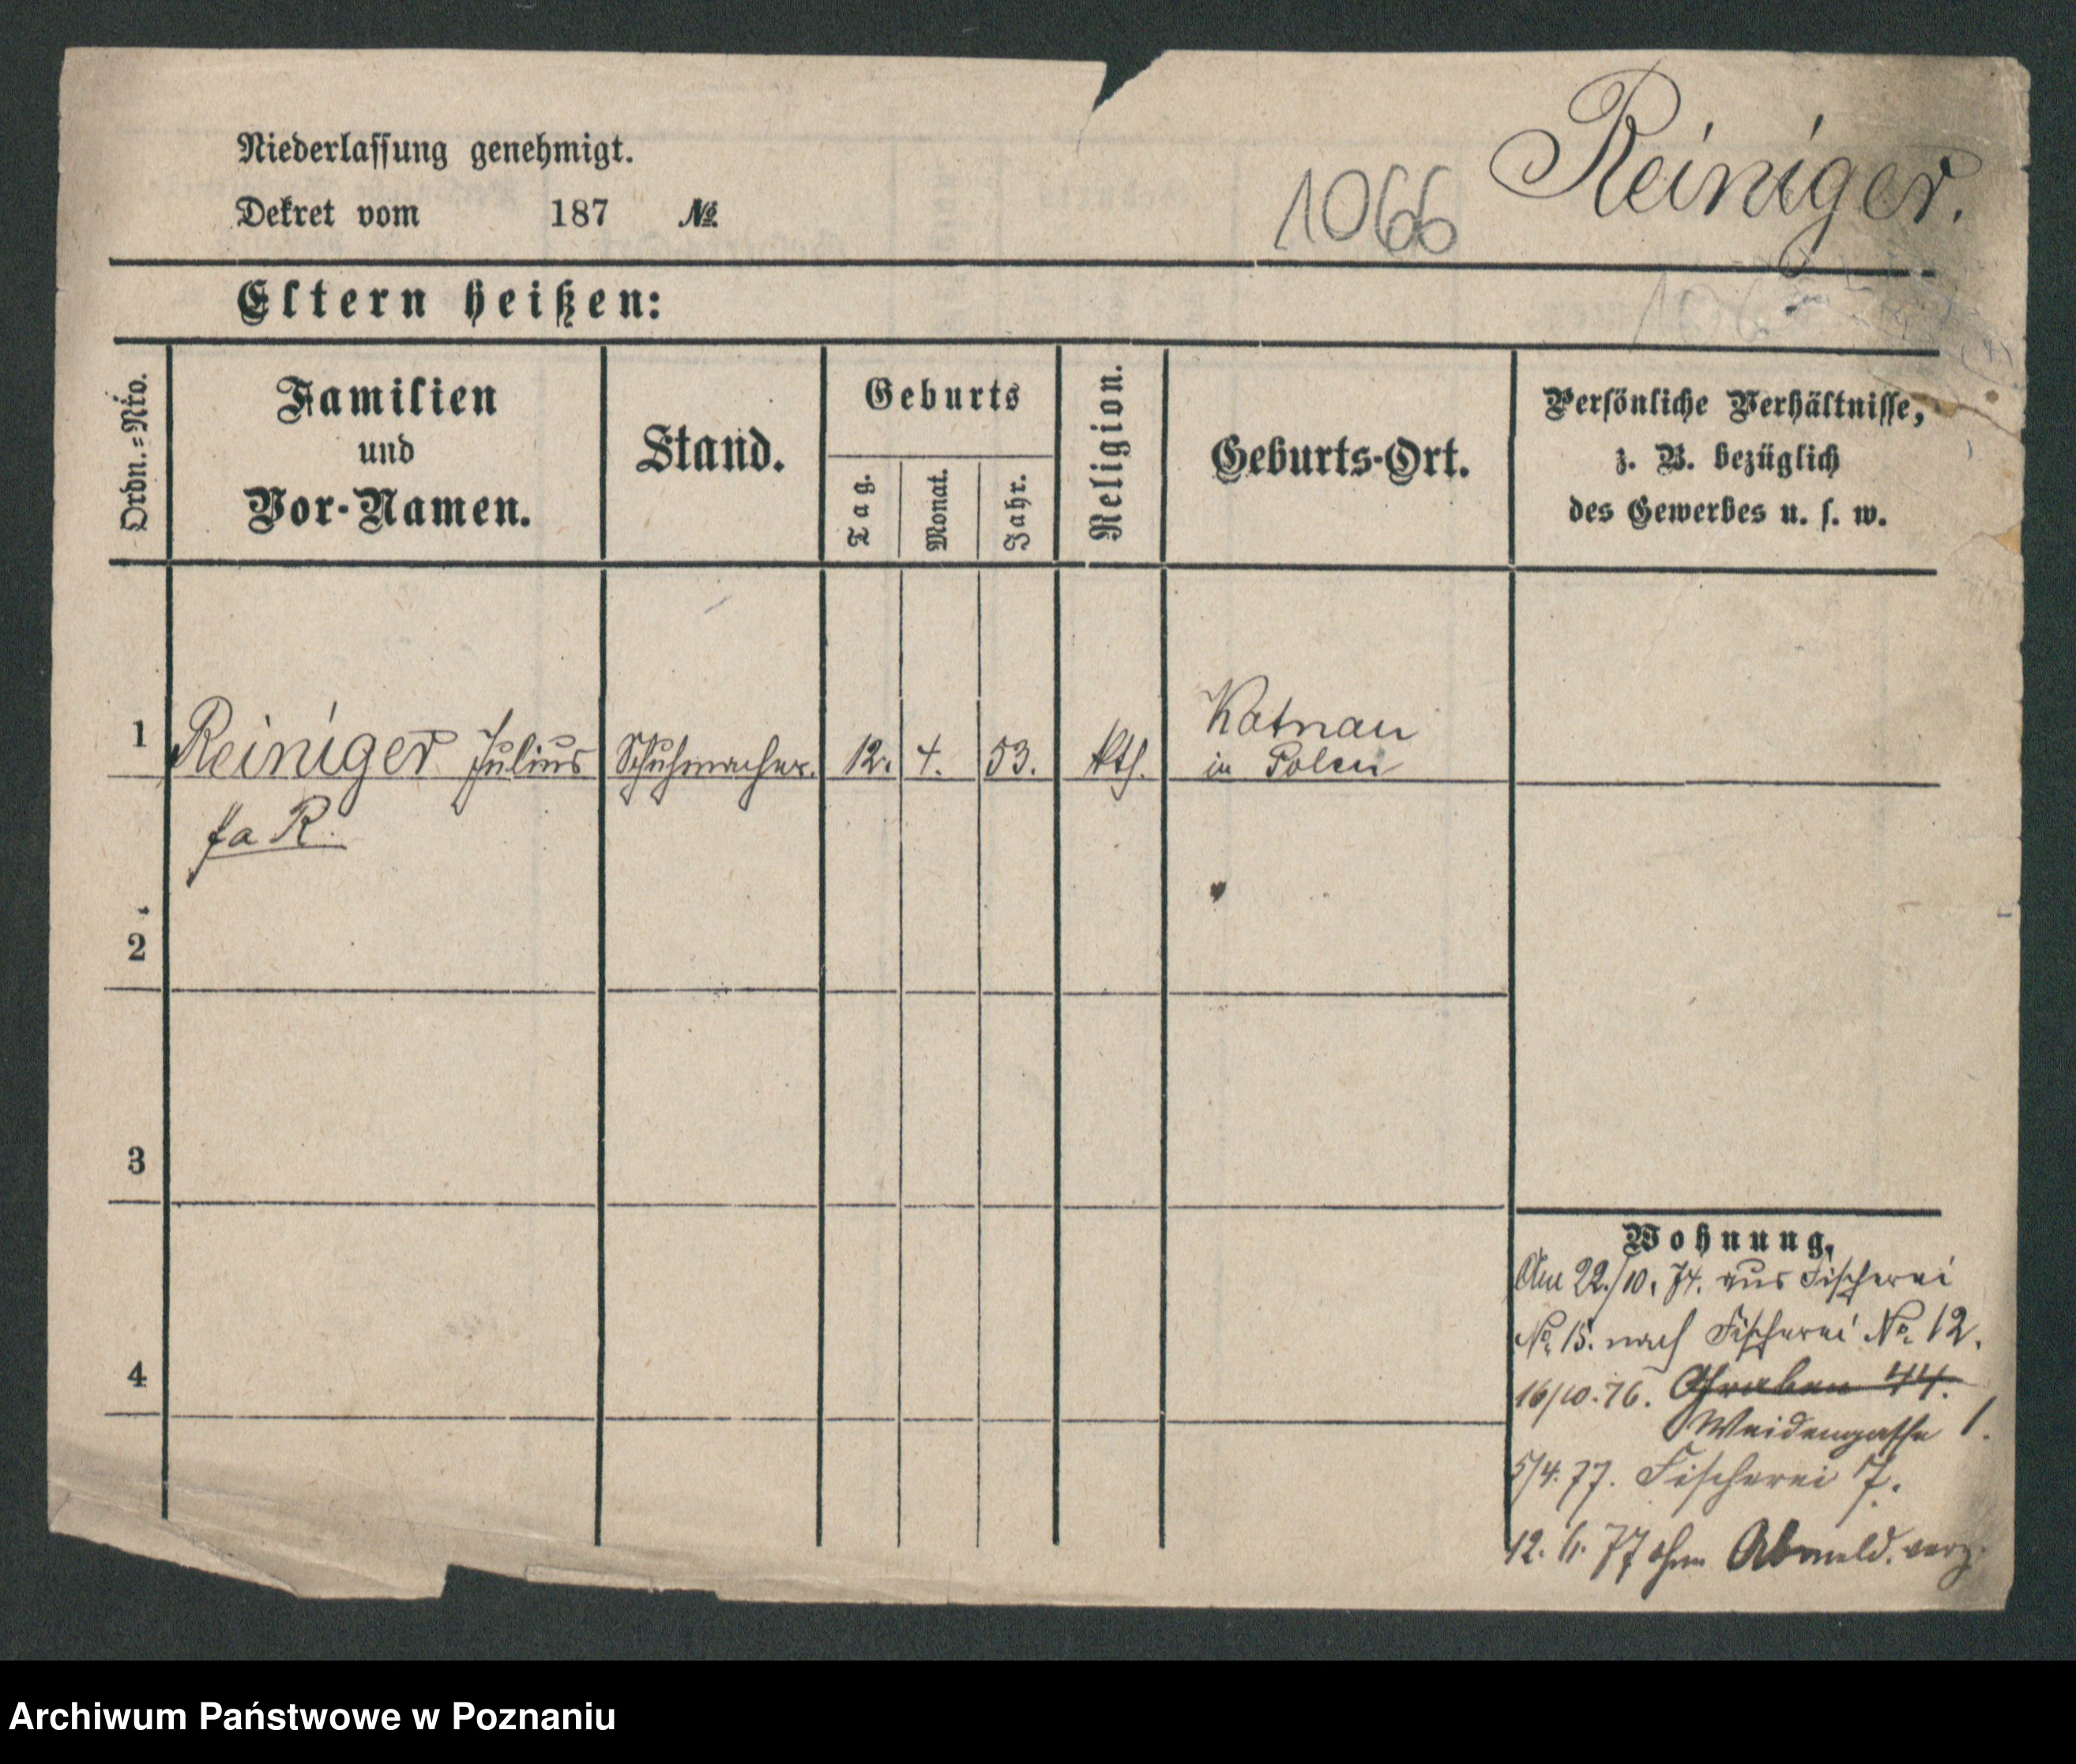 Niederlassung genehmigt.
Dekret vom 187 №
1066
Reiniger.
Eltern heißen:
Ordn.=Nro.
Familien
und
Vor-Namen.
Stand.
Geburts
Tag.
Monat.
Jahr.
Religion.
Geburts-Ort.
Persönliche Verhältnisse,
z. B. bezüglich
des Gewerbes u. s. w.
1 Reiniger Julius Schuhmacher. 12. 4. 53. kth. Katnau
in Polen
fa R.
2
3
4
Wohnung.
Am 22./10. 74. aus Fischerei
No. 15. nach Fischerei No. 12.
16/10. 76. Graben 44.
Weidengasse 1.
5/4. 77. Fischerei 7.
12. 6. 77 ohne Abmeld. verz.
Archiwum Państwowe w Poznaniu